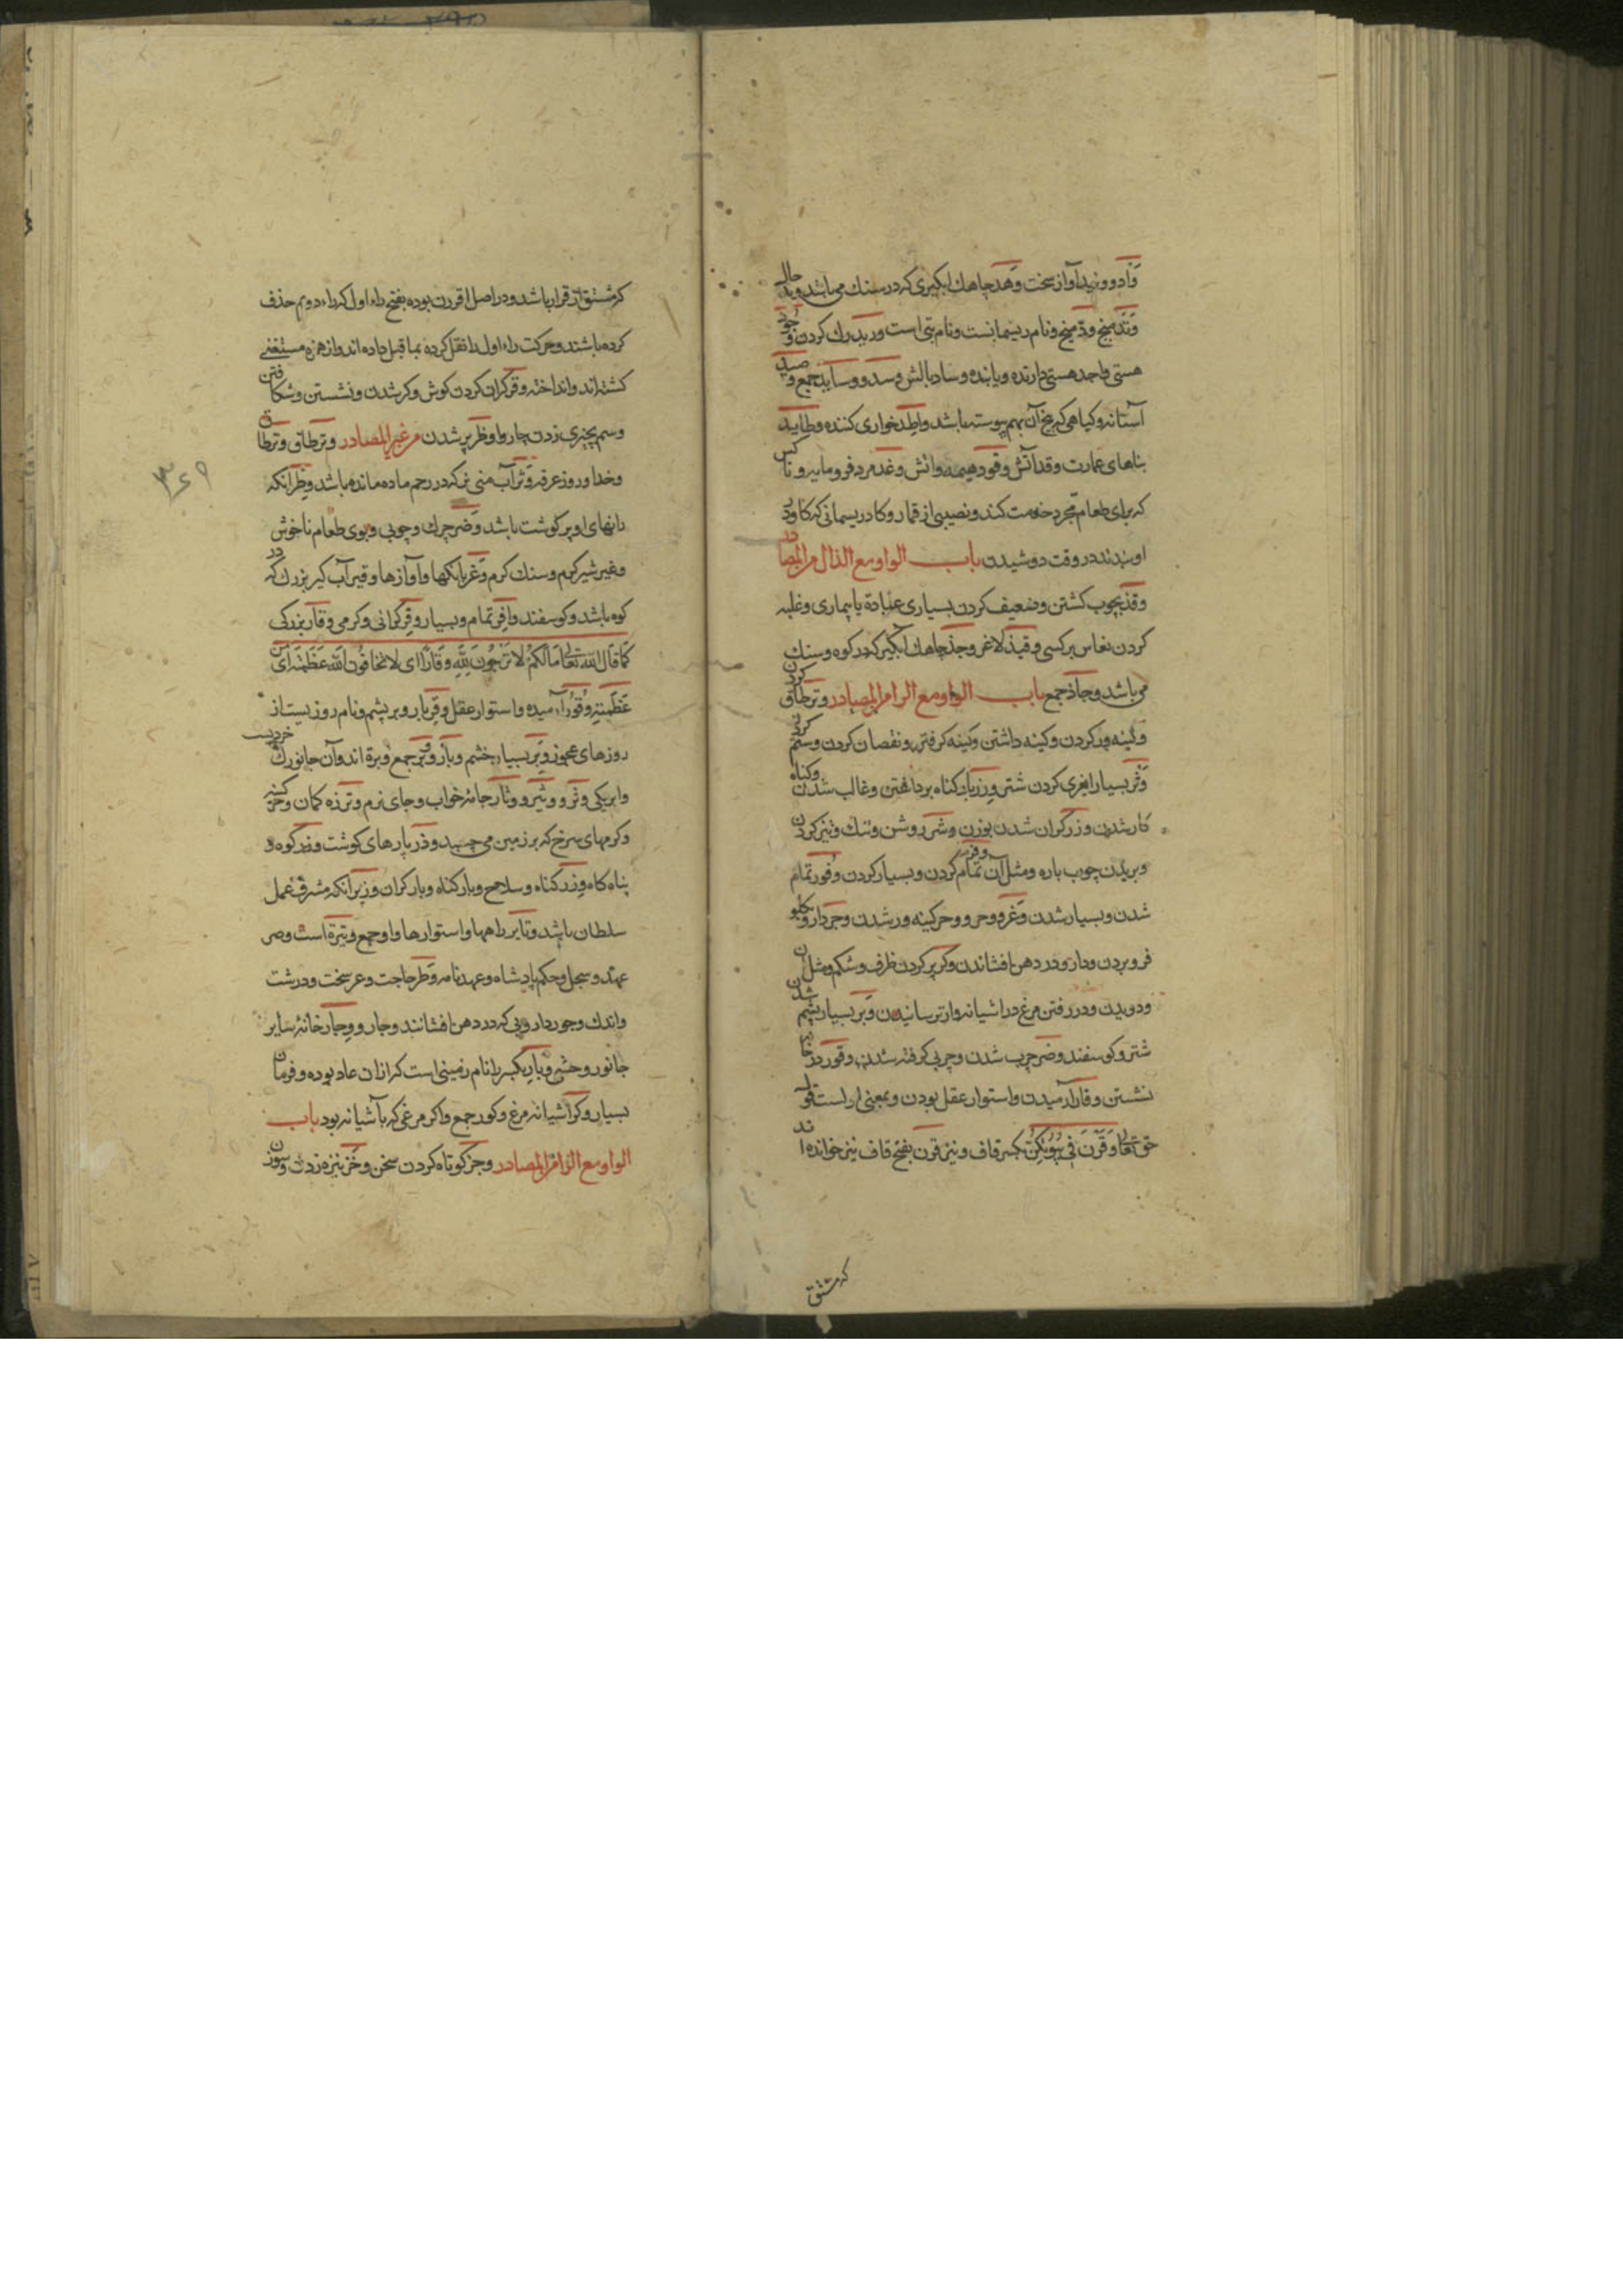 وَاد و وئید آواز سخت وَهد چاهك ابکیری که در سنك می باشد وبد حال
وَتَد میخ ودّ میخ ونام ریسمانست ونام بتی است ورید رك کردن وجود
هستی واجد هستی دارنده ویابنده وساد بالش وسد و وساید جمع وصید
آستانه وکیاهی که بیخ آن بهم پیوسته باشد واطد خواری کننده وطاید
بناهای عمارت وقد آتش وقود هیمه واتش وغد مرد فرومایه وناکس
که برای طعام مجرد خدمت کند ونصیبی از قمار وکاد ریسمانی که کاو بد
او بندند در وقت دوشیدن باب الواو مع الذال من المصادر
وقذ بچوب کشتن وضعیف کردن بسیاری عبادة یا بیماری وغلبه
کردن نعاس بر کسی وقیذ لاغر وجذ چاهك آبکیر که در کوه وسنك
می باشد وجاذ جمع باب الواو مع الرا من المصادر وتر طاق کردن
وکینه ور کردن وکینه داشتن وکینه کرفتن ونقصان کردن وستم کردن
وَثر بسیار ابغری کردن شتر وزر بار کناه برداشتن وغالب شدن وکناه
کار شدن وزر کران شدن بوزن وشر روشن وتنك وتیز کردن
وبریدن چوب باره ومثل آن وفر تمام کردن وبسیار کردن وفور تمام
شدن وبسیار شدن وَغر ووحر ووحر کینه ور شدن وجر دارو بکلو
فرو بردن ودارو در دهن افشاندن وکر پر کردن ظرف وشکم ومثل ان
ودویدن ودر رفتن مرغ در اشیانه وار ترسانیدن وَبر بسیار پشم شدن
شتر وکوسفند وضر چرب شدن وچربی کرفته شدن وقور در خانه
نشستن وقار آرمیدن واستوار عقل بودن وبمعنی اول است قول
حق تعالی وَقَرْنَ فِي بُيُوتِكُنَّ بکسر قاف ونیز قرن بفتح قاف نیز خوانده اند
که مشتق
که مشتق از قرار باشد ودر اصل اقررن بوده بفتح راء اول که راء دوم حذف
کرده باشند وحرکت راء اول را نقل کرده بما قبل داده اند واز همزه مستغنی
کشته اند وانداخته وقر کران کردن کوش وکر شدن ونشستن وشکافتن
وسم بچیزی زدن چاروا وظر پر شدن من غیر المصادر وتر طاق وتر طاق
وخدا وروز عرفه وَثر آب منی نر که در رحم ماده مانده باشد وظر آنکه
رانهای او پر کوشت باشد وَضر چرك وچوبی وبوی طعام ناخوش
وغیر شیر کرم وسنك کرم وَغر بانکها وآوازها وقیر آب کیر بزرك که در
کوه باشد وکوسفند وافر تمام وبسیار وقر کرانی وکرمی وقار بزرکی
كما قال الله تعالى مَا لَكُمْ لَا تَرْجُونَ لِلَّهِ وَقَارًا ای لا تخافون الله عظمة ای من
عظمته وقور آرمیده واستوار عقل وقر بار وبر پشم ونام روزیست از
روزهای عجوز وبر بسیار پشم وبار وبر جمع وبرة اند وآن جانورك خردیست
وابریکی وثر ووثیر ووثار جامه خواب وجای نرم وتر زه کمان وحر کینه
وکرمهای سرخ که بر زمین می چسبد وذر پارهای کوشت وزر کوه و
پناه کاه وزر کناه وسلاح وبار کناه وبار کران وزیر آنکه مشرف عمل
سلطان باشد وتایر راهها واستوارها واو جمع وتیرة است وصر
عهد وسجل وحکم پادشاه وعهد نامه وَطر حاجت وعر سخت ودرشت
واندك وجور دارویی که در دهن افشانند وجار ووجار خانه سایر
جانور وحشی وبار بکسر را نام زمینی است که از ان عاد بوده وفرمان
بسیار وکر آشیانه مرغ وکور جمع واکر مرغی که بآشیانه بود باب
الواو مع الزا من المصادر وجز کوتاه کردن سخن وخز نیزه زدن وسوزن
۳۶۹